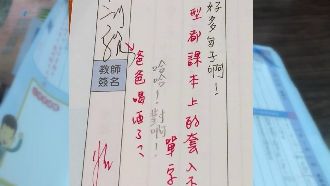 好多句子啊！
型都課本上的套入不
單字
哈哈！對啊！
爸爸喝酒了？
教師
簽名